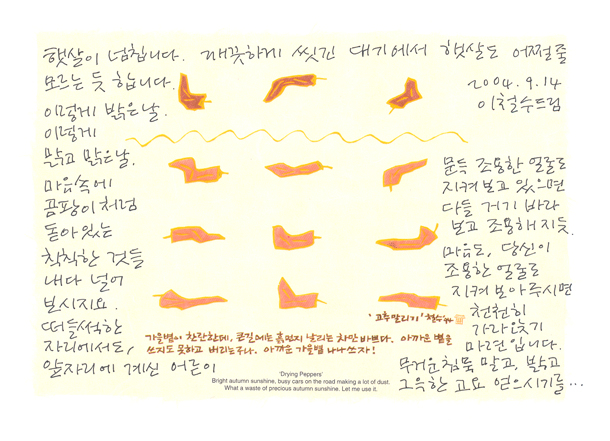 햇살이 넘칩니다. 깨끗하게 씻긴 대기에서 햇살도 어쩔줄
모르는 듯 합니다.
이렇게 밝은날.
이렇게
맑고 맑은날.
마음속에
곰팡이처럼
돋아있는
칙칙한 것들
내다 널어
보시지요.
떠들썩한
자리에서도,
앞자리에 계신 어른이
2004. 9. 14
이철수드림
문득 조용한 얼굴로
지켜보고 있으면
다들 거기 바라
보고 조용해지듯.
마음도, 당신이
조용한 얼굴로
지켜보아주시면
천천히
가라앉기
마련입니다.
무거운침묵 말고, 밝고
그윽한 고요 얻으시기를...
'고추말리기' 철수
가을볕이 찬란한데, 큰길에는 흙먼지 날리는 차만 바쁘다. 아까운 볕을
쓰지도 못하고 버리는구나. 아까운 가을볕 나나쓰자!
'Drying Peppers'
Bright autumn sunshine, busy cars on the road making a lot of dust.
What a waste of precious autumn sunshine. Let me use it.